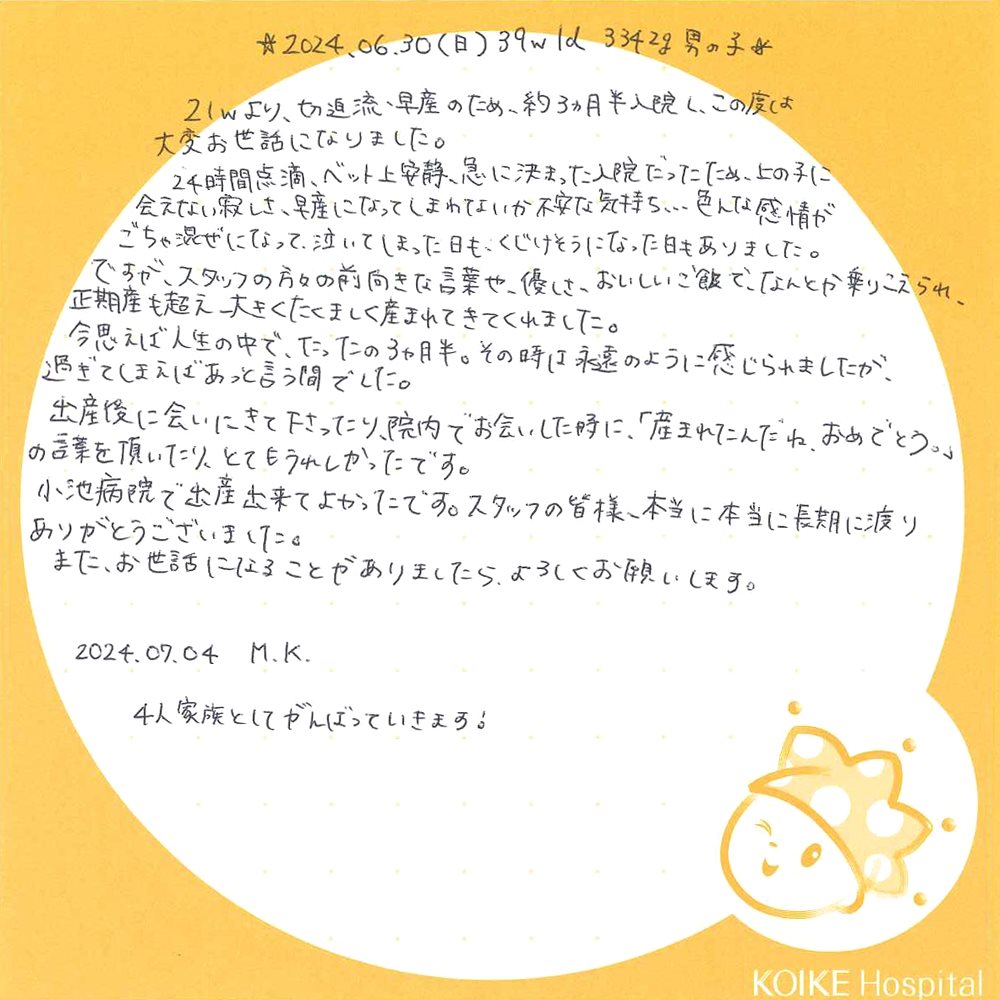 ☆2024.06.30(日) 39w1d 3342g 男の子☆
21wより、切迫流・早産のため、約3ヵ月半入院し、この度は
大変お世話になりました。
24時間点滴、ベット上安静、急に決まった入院だったため、上の子に
会えない寂しさ、早産になってしまわないか不安な気持ち... 色んな感情が
ごちゃ混ぜになって、泣いてしまった日も、くじけそうになった日もありました。
ですが、スタッフの方々の前向きな言葉や、優しさ、おいしいご飯で、なんとか乗りこえられ、
正期産も超え、大きくたくましく産まれてきてくれました。
今思えば人生の中で、たったの3ヵ月半。その時は永遠のように感じられましたが、
過ぎてしまえばあっと言う間でした。
出産後に会いにきて下さったり、院内でお会いした時に、「産まれてたんだね、おめでとう。」
の言葉を頂いたり、とてもうれしかったです。
小池病院で出産出来てよかったです。スタッフの皆様、本当に本当に長期に渡り
ありがとうございました。
また、お世話になることがありましたら、よろしくお願いします。
2024.07.04 M.K.
4人家族としてがんばっていきます!
KOIKE Hospital